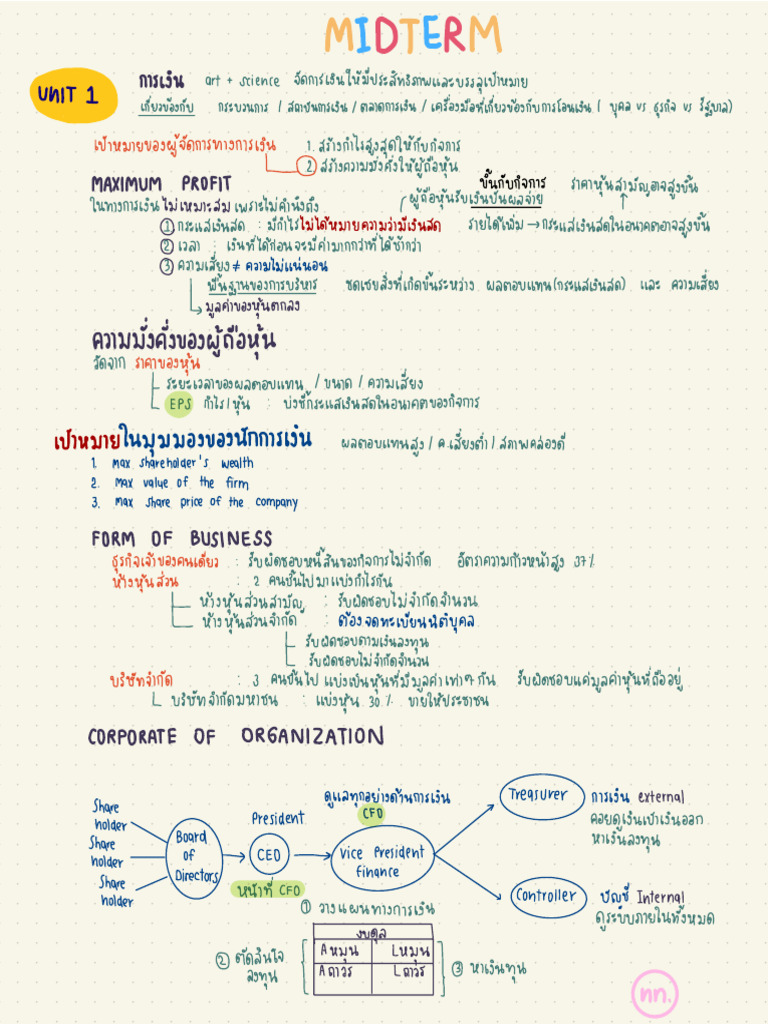 MIDTERM
UNIT 1
การเงิน art + science จัดการเงินให้มีประสิทธิภาพและบรรลุเป้าหมาย
เกี่ยวข้องกับ กระบวนการ / สถาบันการเงิน / ตลาดการเงิน / เครื่องมือที่เกี่ยวข้องกับการโอนเงิน ( บุคคล vs ธุรกิจ vs รัฐบาล)
เป้าหมายของผู้จัดการทางการเงิน 1. สร้างกำไรสูงสุดให้กับกิจการ
2 สร้างความมั่งคั่งให้ผู้ถือหุ้น
MAXIMUM PROFIT ขึ้นกับกิจการ ราคาหุ้นสามัญอาจสูงขึ้น
ในทางการเงิน ไม่เหมาะสม เพราะไม่คำนึงถึง ผู้ถือหุ้นรับเงินปันผลจ่าย
1 กระแสเงินสด : มีกำไรไม่ได้หมายความว่ามีเงินสด รายได้เพิ่ม → กระแสเงินสดในอนาคตอาจสูงขึ้น
2 เวลา : เงินที่ได้ก่อนจะมีค่ามากกว่าที่ได้ช้ากว่า
3 ความเสี่ยง ≠ ความไม่แน่นอน
พื้นฐานของการบริหาร ชดเชยสิ่งที่เกิดขึ้นระหว่าง ผลตอบแทน(กระแสเงินสด) และ ความเสี่ยง
มูลค่าของหุ้นตกลง
ความมั่งคั่งของผู้ถือหุ้น
วัดจาก ราคาของหุ้น
ระยะเวลาของผลตอบแทน / ขนาด / ความเสี่ยง
EPS กำไร/หุ้น : บ่งชี้กระแสเงินสดในอนาคตของกิจการ
เป้าหมายในมุมมองของนักการเงิน ผลตอบแทนสูง / ค.เสี่ยงต่ำ / สภาพคล่องดี
1. max shareholder's wealth
2. max value of the firm
3. max share price of the company
FORM OF BUSINESS
ธุรกิจเจ้าของคนเดียว : รับผิดชอบหนี้สินของกิจการไม่จำกัด อัตราความก้าวหน้าสูง 37%
ห้างหุ้นส่วน : 2 คนขึ้นไปมาแบ่งกำไรกัน
ห้างหุ้นส่วนสามัญ : รับผิดชอบไม่จำกัดจำนวน
ห้างหุ้นส่วนจำกัด : ต้องจดทะเบียนนิติบุคคล
รับผิดชอบตามเงินลงทุน
รับผิดชอบไม่จำกัดจำนวน
บริษัทจำกัด : 3 คนขึ้นไป แบ่งเป็นหุ้นที่มีมูลค่าเท่าๆ กัน รับผิดชอบแค่มูลค่าหุ้นที่ถืออยู่
บริษัทจำกัดมหาชน : แบ่งหุ้น 30% ขายให้ประชาชน
CORPORATE OF ORGANIZATION
Share holder
Share holder
Share holder
Board of Directors
President
CEO
หน้าที่ CFO
ดูแลทุกอย่างด้านการเงิน
CFO
Vice President finance
Treasurer การเงิน external
คอยดูเงินเข้าเงินออก
หาเงินลงทุน
Controller บัญชี Internal
ดูระบบภายในทั้งหมด
1 วางแผนทางการเงิน
งบดุล
2 ตัดสินใจ
ลงทุน
A หมุน L หมุน
A ถาวร L ถาวร
3 หาเงินทุน
ททท.